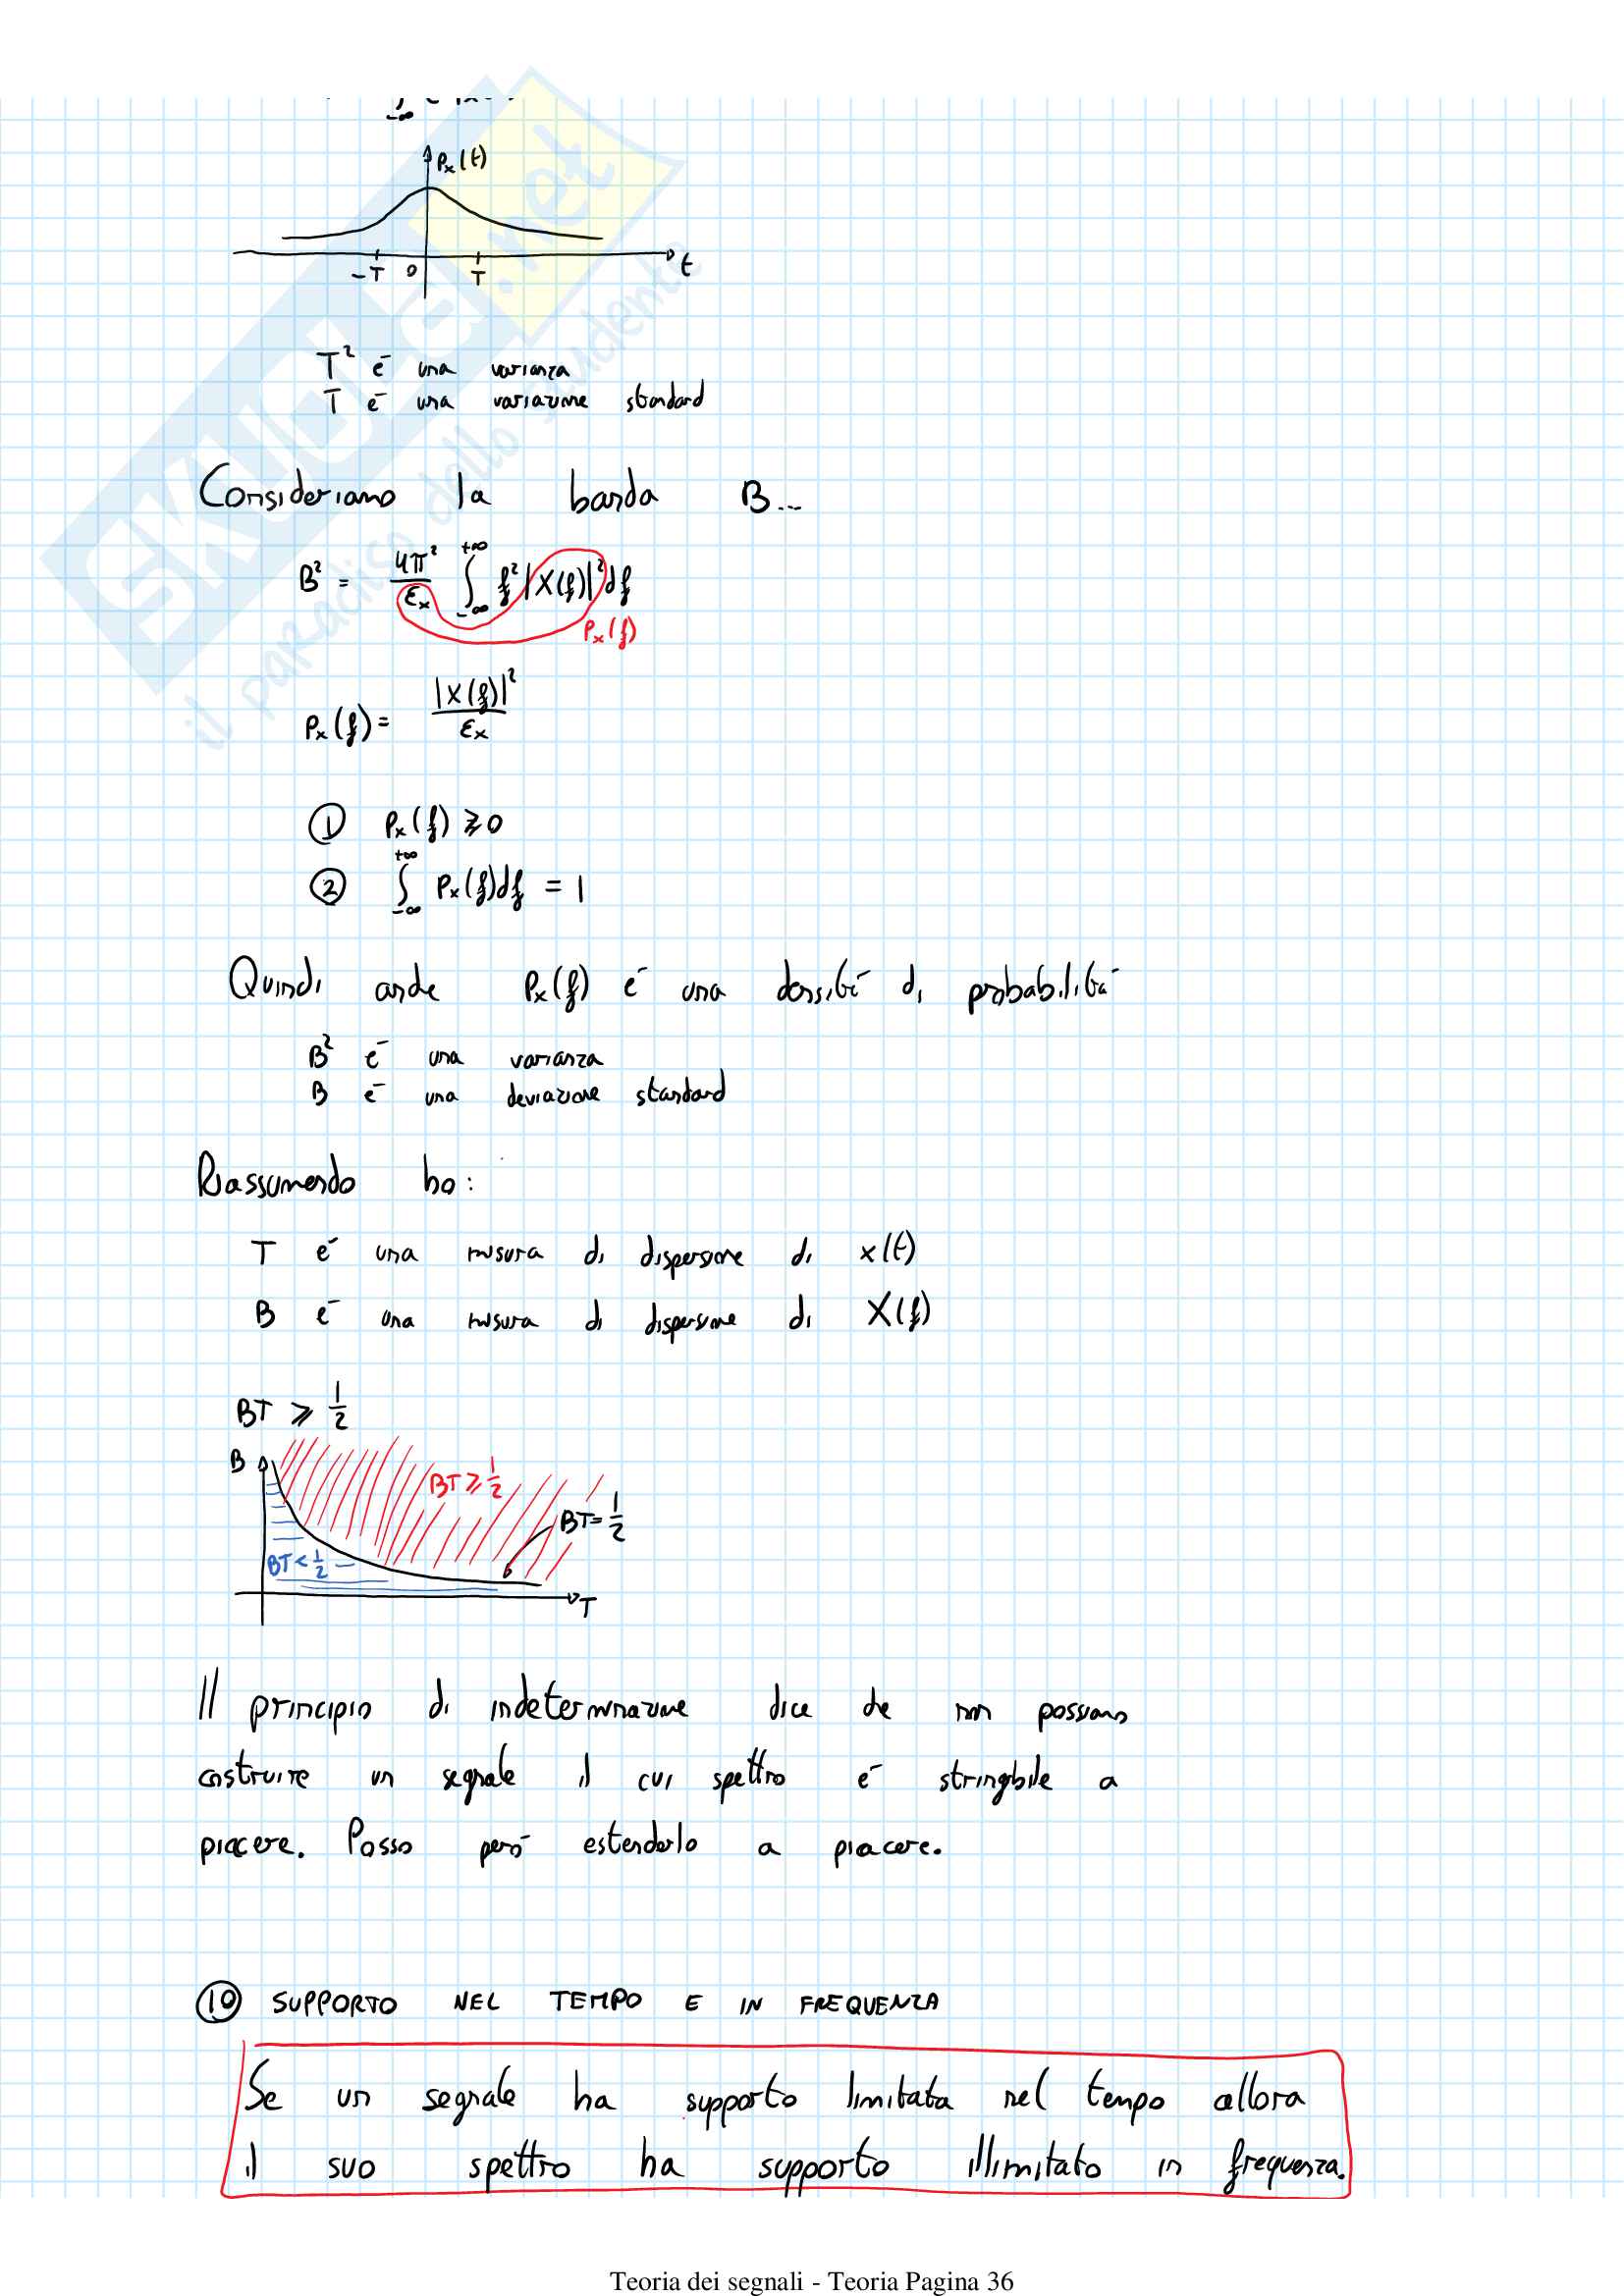 -∞
Px(t)
-T 0 T t
T² é una varianza
T é una variazione standard
Consideriamo la banda B...
B² = 4π²/εx ∫_{-∞}^{+∞} f² |X(f)|² df
Px(f)
Px(f) = |X(f)|²/εx
① Px(f) ⩾ 0
② ∫_{-∞}^{+∞} Px(f)df = 1
Quindi anche Px(f) é una densità di probabilità
B² é una varianza
B é una deviazione standard
Riassumendo ho:
T é una misura di dispersione di x(t)
B é una misura di dispersione di X(f)
BT ⩾ 1/2
B
BT ⩾ 1/2
BT = 1/2
BT < 1/2
T
Il principio di indeterminazione dice che non possiamo
costruire un segnale il cui spettro é stringibile a
piacere. Posso però estenderlo a piacere.
⑩ SUPPORTO NEL TEMPO E IN FREQUENZA
Se un segnale ha supporto limitata nel tempo allora
il suo spettro ha supporto illimitato in frequenza.
Teoria dei segnali - Teoria Pagina 36
SKUOLa.net
il paradiso dello studente